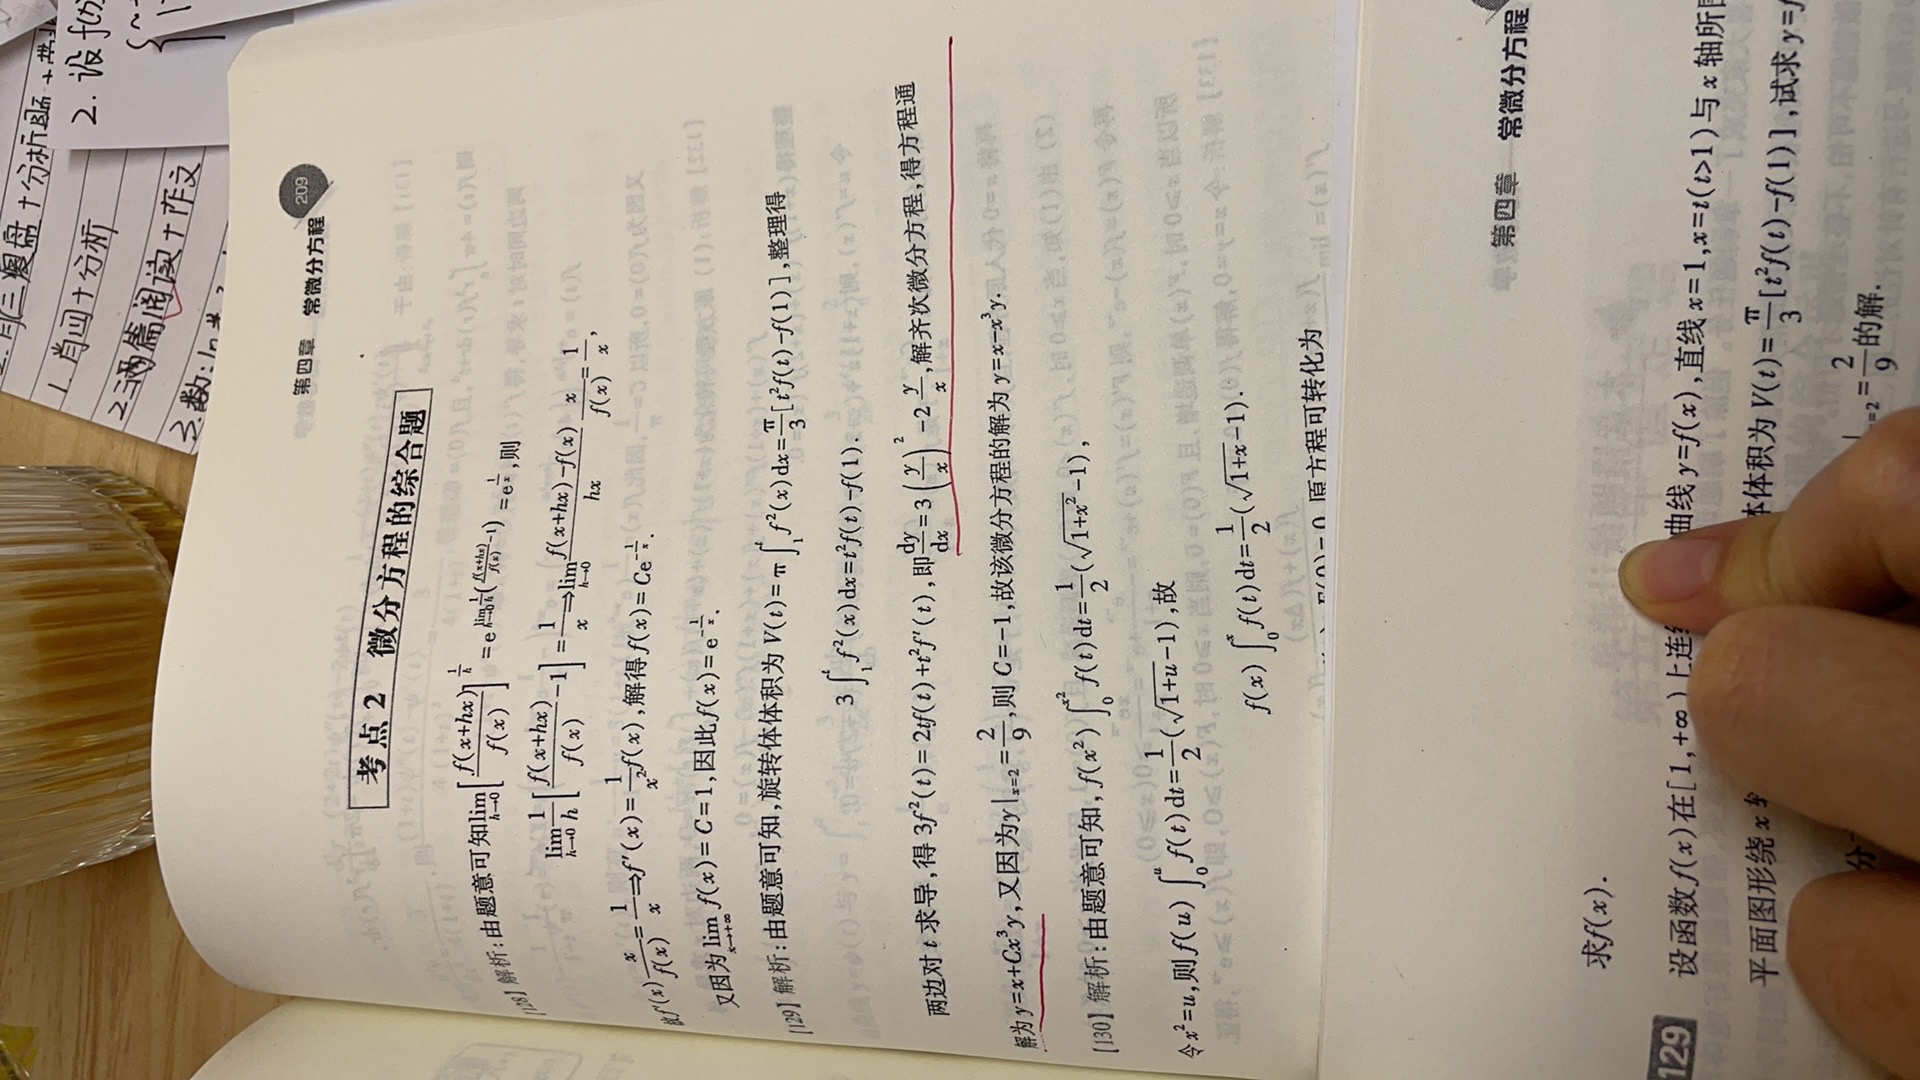 第四章 常微分方程 209
考点 2 微分方程的综合题
[128] 解析:由题意可知 lim_{h→0}[f(x+hx)/f(x)]^{1/h} = e^{lim_{h→0} 1/h (f(x+hx)/f(x) -1)} = e^{1/x},则
lim_{h→0} 1/h [f(x+hx)/f(x) -1] = 1/x ⇒ lim_{h→0} (f(x+hx)-f(x))/hx · x/f(x) = 1/x,
故f'(x) x/f(x) = 1/x ⇒ f'(x) = 1/x² f(x),解得f(x)=Ce^{-1/x}.
又因为 lim_{x→+∞} f(x)=C=1,因此f(x)=e^{-1/x}.
[129] 解析:由题意可知,旋转体体积为V(t)=π∫_1^t f²(x)dx=π/3[t²f(t)-f(1)],整理得
3∫_1^t f²(x)dx=t²f(t)-f(1).
两边对 t 求导,得 3f²(t)=2tf(t)+t²f'(t),即 dy/dx = 3(y/x)² -2 y/x,解齐次微分方程,得方程通
解为y=x+Cx³y,又因为y|_{x=2}=2/9,则 C=-1,故该微分方程的解为 y=x-x³y.
[130] 解析:由题意可知,f(x²)∫_0^{x²} f(t)dt=1/2(√(1+x²)-1),
令x²=u,则f(u)∫_0^u f(t)dt=1/2(√(1+u)-1),故
f(x)∫_0^x f(t)dt=1/2(√(1+x)-1).
原方程可转化为
第四章 常微分方程
求f(x).
129 设函数f(x)在[1,+∞)上连 曲线y=f(x),直线x=1,x=t(t>1)与x轴所
平面图形绕x 体体积为V(t)=π/3[t²f(t)-f(1)],试求y=f
=2/9的解.
2. 设f(
1. 肖四+分析
2. 两篇阅读+作文
3. 数:
复盘+分析题